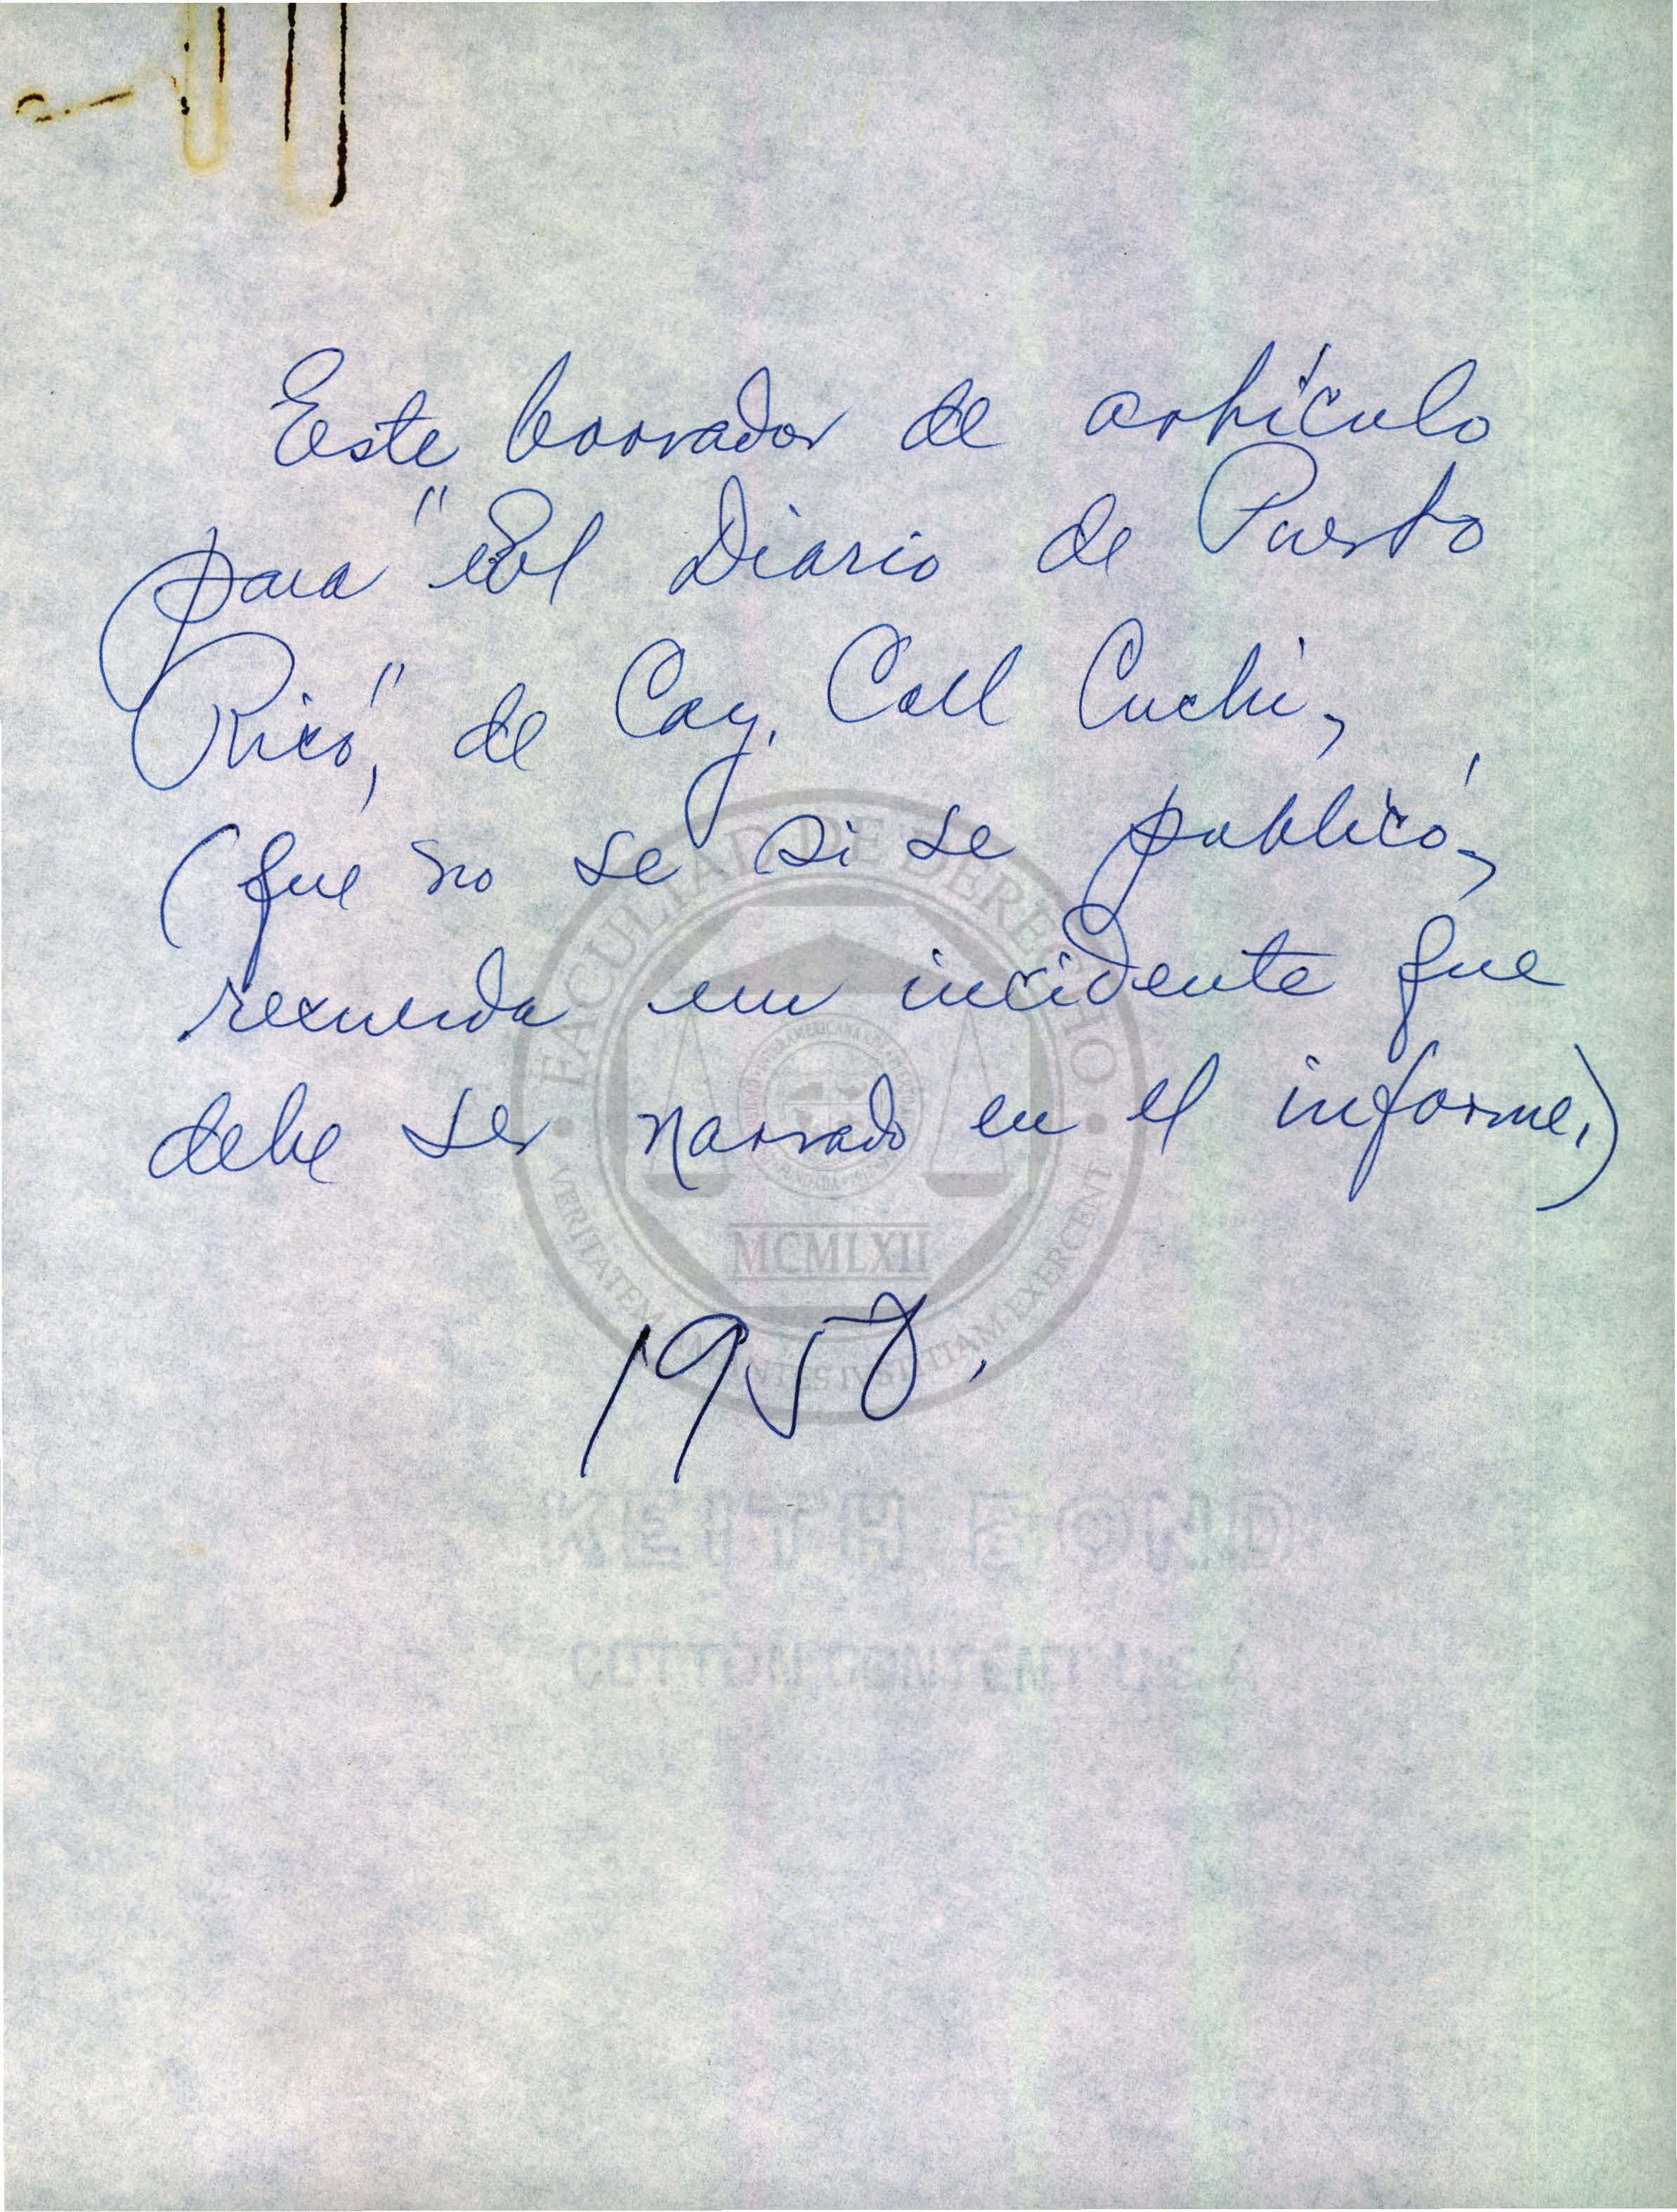 Este borrador de artículo
para "El Diario de Puerto
Rico", de Cay. Coll Cuchi,
(que no se si se publicó,
recuerda un incidente que
debe ser narrado en el informe.)
1950.
FACULTAD DE DERECHO
MCMLXII
KEITH BOND
COTTON CONTENT U.S.A